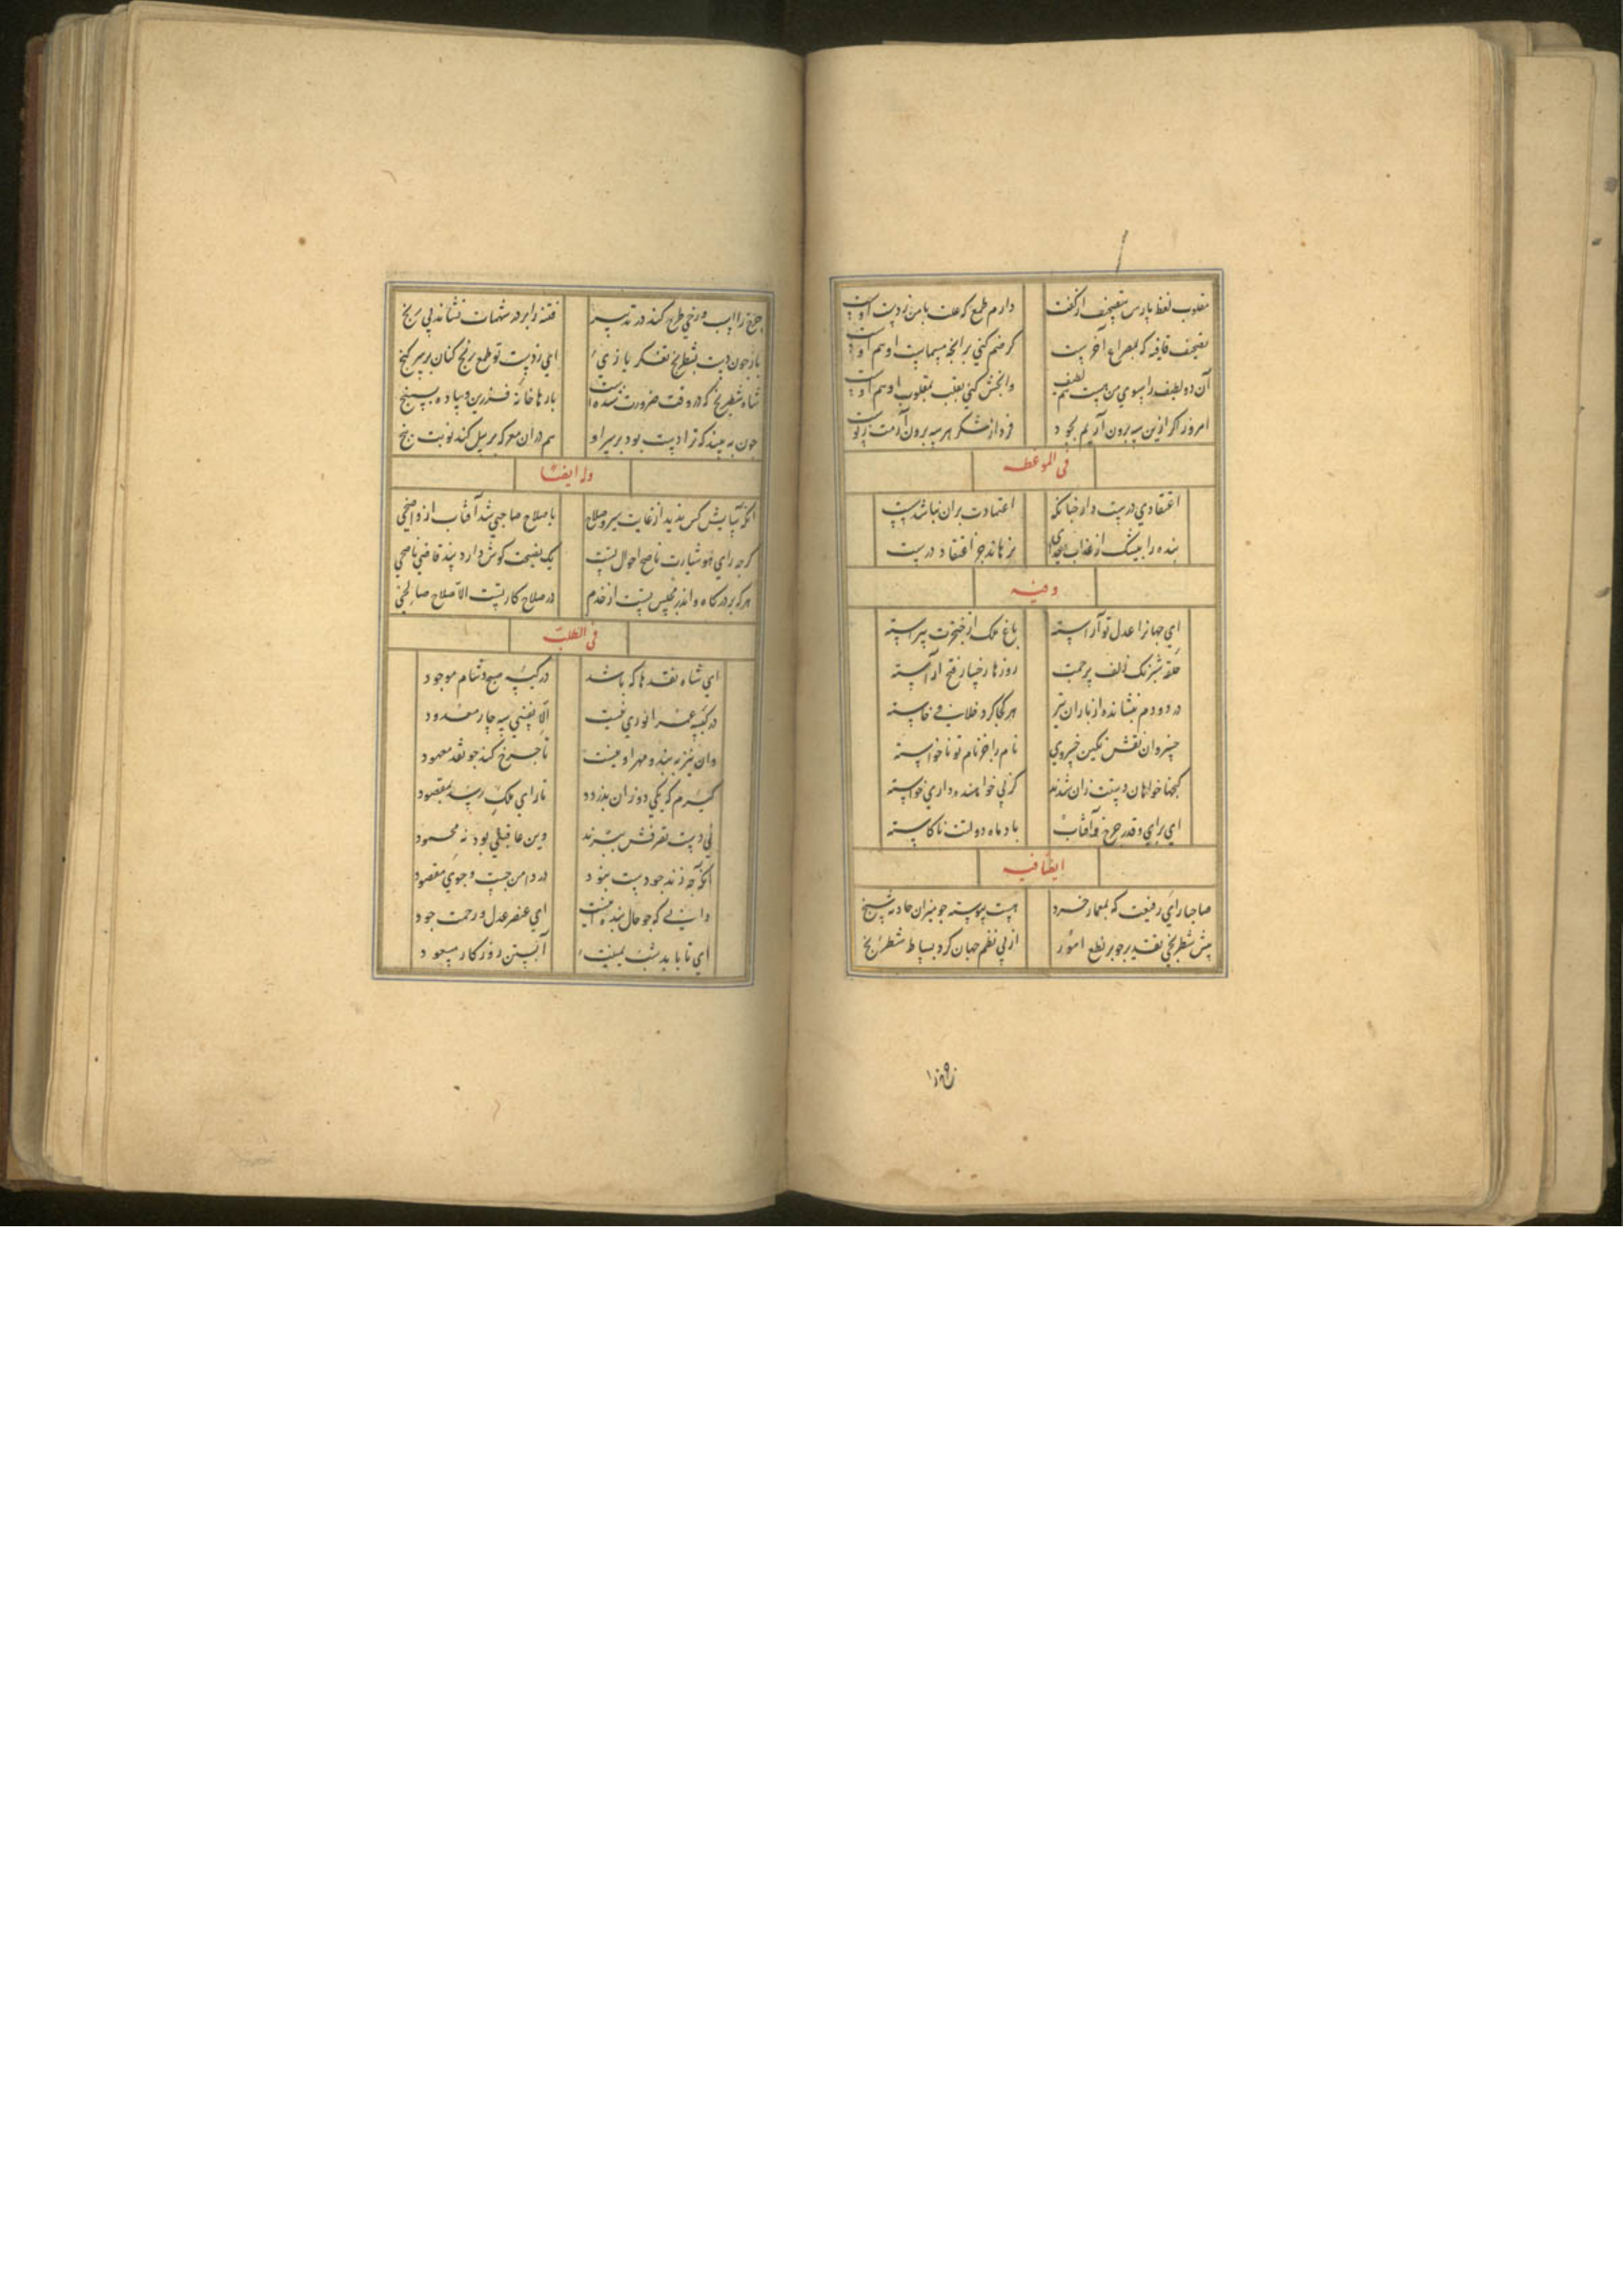 مقلوب لفظ پارس بتصحیف از کفت دارم طمع که علت با من ز دست اوست
تصحیف قافیه که بمصراع آخرست کر ضم کنی بر آنجه مسماست او هم اوست
آن دو لطیف را سوی من هست لطیف هم وانجش کنی بقلب مقلوب او هم اوست
امروز اکر ازین سه برون آریم بجود فردا ز شکر هر سه برون آرمت ز پوست
فی الموعظه
اعتقادی درست دار جنانک اعتمادت بران نباشد سست
بنده را بیشک از عذاب خدای نرهاند جز اعتقاد درست
وفیه
ای جهانرا عدل تو آراسته باغ ملک از خنجرت پیراسته
حلقه شبرنک زلف پرجمت روزها رخسار فتح آراسته
در دو دم بنشانده از باران تیر هر کجا کرد خلافی خاسته
خسروان نقش نکین خسروی نام را جز نام تو ناخواسته
کنجها خواهان دستت زان شدند کز پی خواهنده داری خواسته
ای برای و قدر جرخ و آفتاب باد ماه دولتت ناکاسته
ایضا فیه
صاحبا رای رفیعت که بمعمار خرد هست پیوسته جو میزان حادثه سنج
پیش شطرنجی تقدیر جو بر نطع امور از پی نظم جهان کرد بساط شطرنج
جرخ را اسب و رخی طرح کند در تدبیر فتنه را بر در شهمات نشاند بی رنج
باز جون دست بشطرنج تفکر یازی ای ز دست تو طمع برنج کنان بر سر کنج
شاه شطرنج که در وقت ضرورت شده است بارها خانه فرزین و پیاده بسپنج
جون به بیند که ترا دست بود بر سر او هم دران معرکه بر پیل کند نوبت پنج
وله ایضا
آنکه آسایش کس ندید از غایت سیر و صلاح با صلاح صاحبی شد آفتاب از واضحی
کرجه رای هوشیارت ناصح احوال تست یک نصیحت کوش دارد پند قاضی ناصحی
هر که بر درکاه و اندر مجلس تست از خدم در صلاح کار تست الا صلاح صالحی
فی الطلب
ای شاه نقدها که باشد در کیسه صبح و شام موجود
در کیسه عمر انوری نیست الا نفسی سه جار معدود
وان نیز به بند و مهر او نیست تا خرج کند جو نقد معهود
کیرم که یکی دو زان بدزدد تا رای ملک رسد بمقصود
بی دست تصرفش ببرند وین عاقلی بود نه محمود
آنکو جه زند جو دست نبود در دامن جست و جوی مقصود
دانی که جو حال بنده اینست ای عنصر عدل و رحمت جود
ای تا باید شب آبستن روزکار مسعود